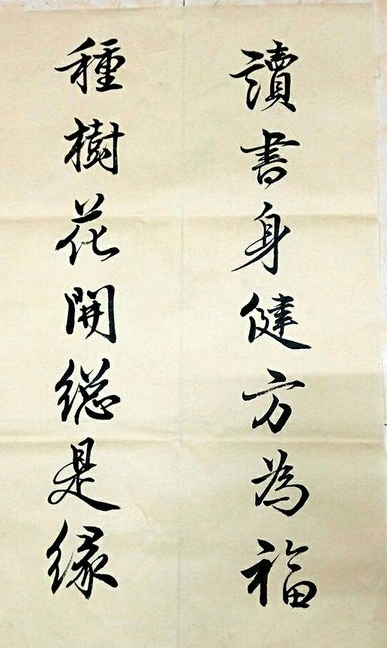 讀書身健方為福
種樹花開總是緣